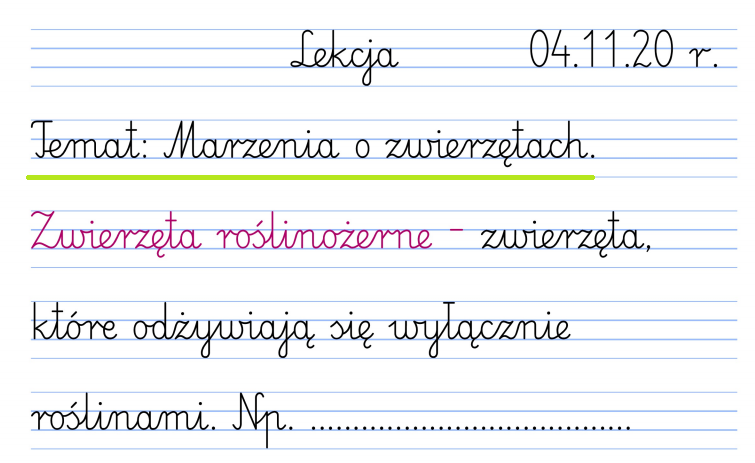 Lekcja 04.11.20 r.
Temat: Marzenia o zwierzętach.
Zwierzęta roślinożerne - zwierzęta,
które odżywiają się wyłącznie
roślinami. Np. ......................................